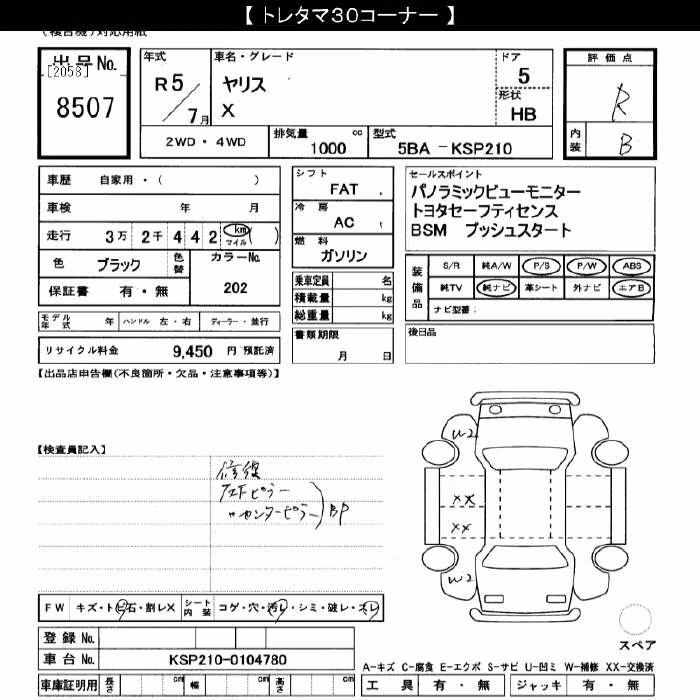 【 トレタマ30コーナー 】
(複合機)対応用紙
出品No.
[2058]
8507
年式
R5/7月
車名・グレード
ヤリス
X
ドア
5
形状
HB
評価点
R
内装
B
2WD・4WD
排気量 cc
1000
型式
5BA -KSP210
車歴 自家用・( )
車検 年 月
走行 3万 2千 4 4 2 km マイル ( )
色 ブラック 色替 カラーNo.
保証書 有・無 202
モデル年式 年 ハンドル 左・右 ディーラー・並行
リサイクル料金 9,450 円 預託済
シフト
FAT
冷房
AC
燃料
ガソリン
乗車定員 名
積載量 kg
総重量 kg
書類期限
月 日
セールスポイント
パノラミックビューモニター
トヨタセーフティセンス
BSM プッシュスタート
装備品
S/R 純A/W P/S P/W ABS
純TV 純ナビ 革シート 外ナビ エアB
ナビ型番:
後日品
【出品店申告欄(不良箇所・欠品・注意事項等)】
【検査員記入】
修復
左Fピラー
〃センターピラー
BP
W2
XX
XX
W2
FW キズ・トビ石・割レX シート内装 コゲ・穴・汚レ・シミ・破レ・スレ
登録No.
車台No. KSP210-0104780
車庫証明用 長さ cm 幅 cm 高さ cm
スペア
A-キズ C-腐食 E-エクボ S-サビ U-凹ミ W-補修 XX-交換済
工具 有・無 ジャッキ 有・無